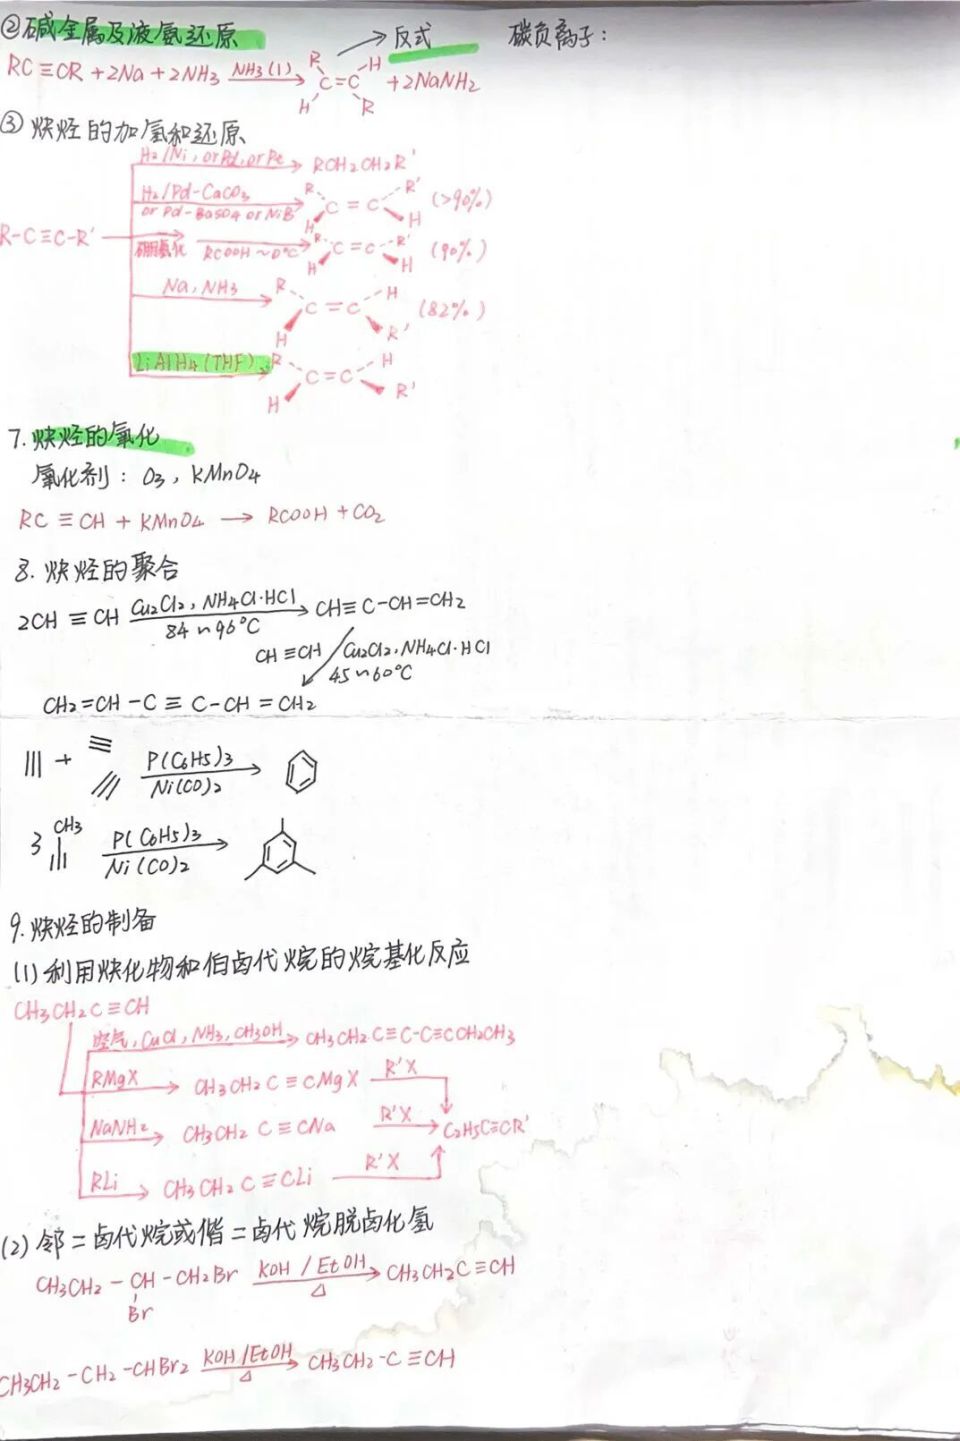 ②碱金属及液氨还原 反式 碳负离子：
RC≡CR+2Na+2NH3 NH3(l) → R H C=C H R +2NaNH2
③炔烃的加氢和还原
H2/Ni, or Pd, or Pt → RCH2CH2R'
H2/Pd-CaCO3 or Pd-BaSO4 or NiB → R R' C=C H H (>90%)
R-C≡C-R'
硼氢化 RCOOH ~0°C → R R' C=C H H (90%)
Na, NH3 → R H C=C H R' (82%)
LiAlH4(THF) → R H C=C H R'
7.炔烃的氧化
氧化剂：O3，KMnO4
RC≡CH+KMnO4 → RCOOH+CO2
8.炔烃的聚合
2CH≡CH Cu2Cl2, NH4Cl·HCl 84~96°C → CH≡C-CH=CH2
CH≡CH Cu2Cl2, NH4Cl·HCl
45~60°C
CH2=CH-C≡C-CH=CH2
P(C6H5)3
Ni(CO)2
3 CH3 P(C6H5)3
Ni(CO)2
9.炔烃的制备
(1)利用炔化物和伯卤代烷的烷基化反应
CH3CH2C≡CH
空气, CuCl, NH3, CH3OH → CH3CH2C≡C-C≡CCH2CH3
RMgX → CH3CH2C≡CMgX R'X
NaNH2 → CH3CH2C≡CNa R'X → C2H5C≡CR'
RLi → CH3CH2C≡CLi R'X
(2)邻二卤代烷或偕二卤代烷脱卤化氢
CH3CH2-CH-CH2Br KOH/EtOH △ → CH3CH2C≡CH
Br
CH3CH2-CH2-CHBr2 KOH/EtOH △ → CH3CH2-C≡CH